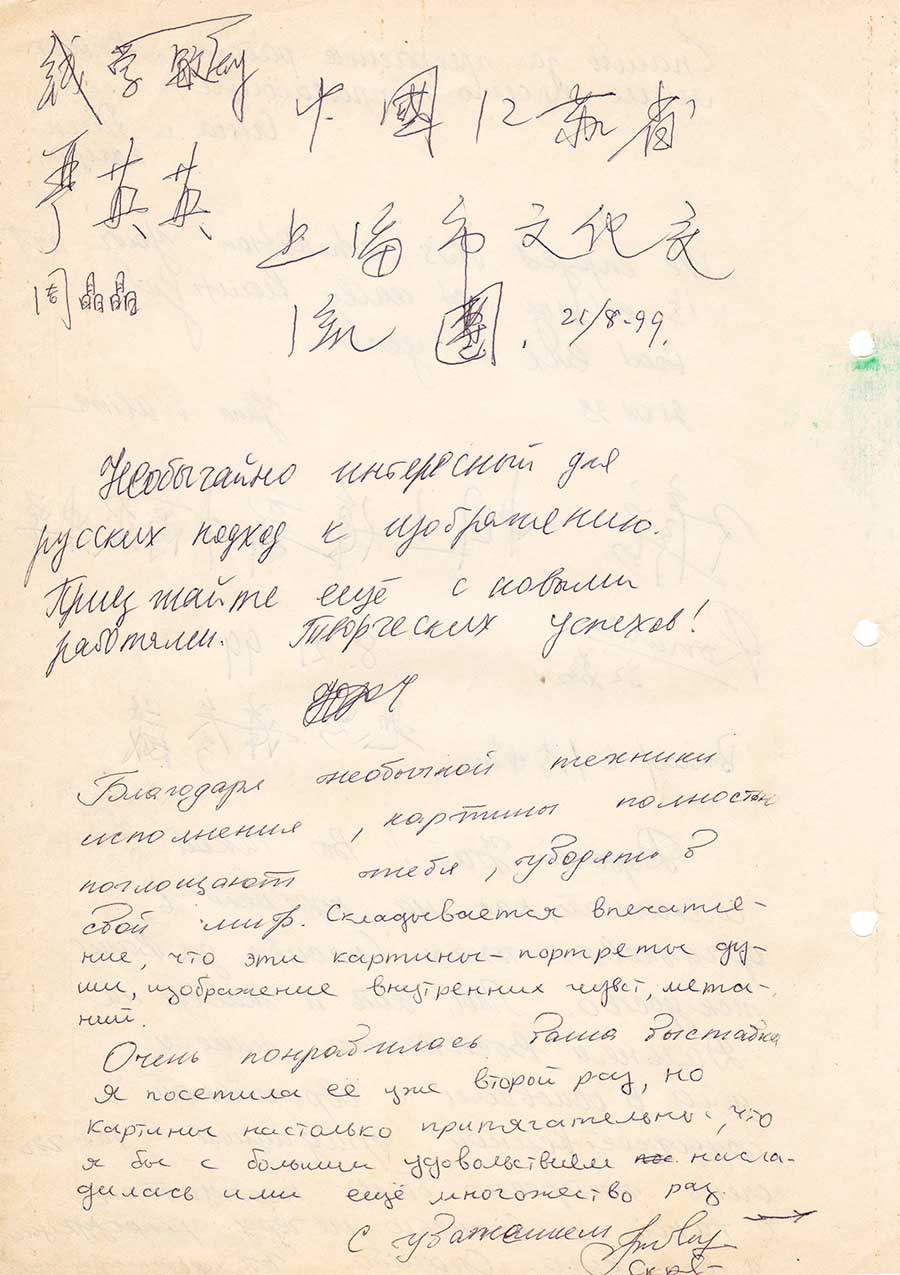 钱学敏
严英英
周晶晶
中國江苏省
上海市文化交
流團. 21/8-99.
Необычайно интересный для
русских подход к изображению.
Приезжайте ещё с новыми
работами. Творческих успехов!
Благодаря необычной техники
исполнения, картины полностью
поглощают тебя, уводят в
свой мир. Складывается впечатле-
ние, что эти картины-портреты ду-
ши, изображение внутренних чувст, мета-
ний.
Очень понравилась ваша выставка
Я посетила её уже второй раз, но
картины настолько притягательны, что
я бы с большим удовольствием насла-
дилась ими ещё множество раз.
С уважением